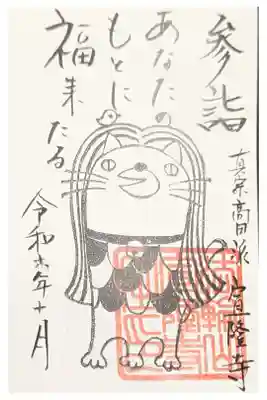 参詣
あなたの
もとに
福来たる
真宗高田派
宣隆寺
令和六年十月